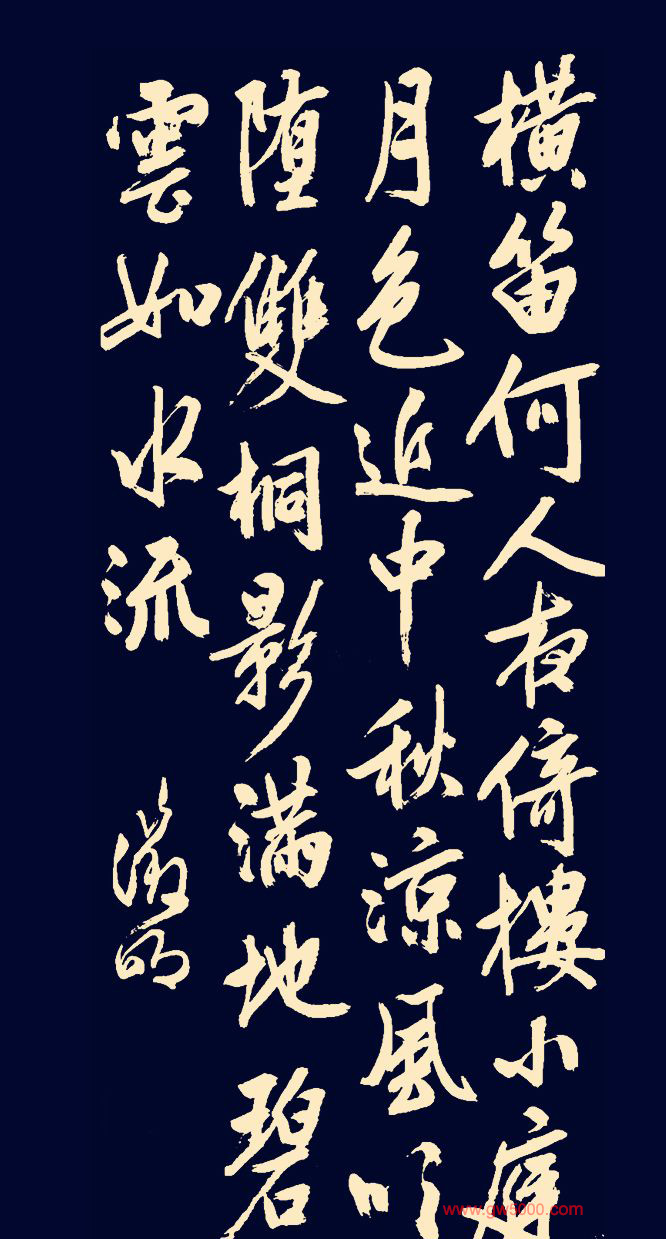 橫笛何人夜倚樓小庭
月色近中秋涼風吹
墮雙桐影滿地碧
雲如水流
徵明
www.gw5000.com